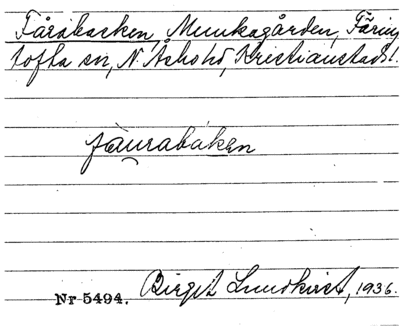 Fårabacken, Munkagården, Färing
tofta sn, N. Åsbo hd, Kristianstads l.
fàu̯rabáken
Nr 5494. Birgit Lundkvist, 1936.